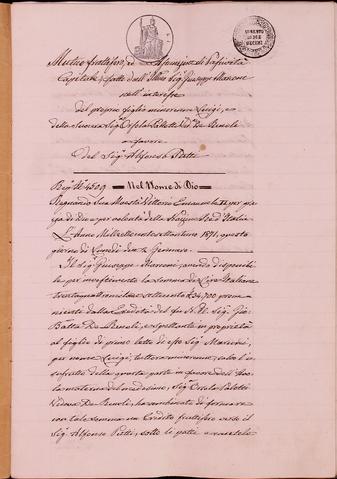 Mutuo fruttifero, ed Assunzione di Passività
Capitale, fatte dall' Ill.mo Sig.r Giuseppe Manone
nell'interesse
del proprio figlio minorenne Luigi, e
della Sig.ra Orsola Ved.a De Benoli
a favore
del Sig.r Alfonso Piatti
Reg.° N.° 4509 Nel Nome di Dio
Regnando Sua Maestà Vittorio Emanuele II per gra
zia di Dio e per volontà della Nazione Re d'Italia
L'Anno Mille ottocento settantuno 1871, questo
giorno di Lunedì due 2 Gennaro.
Il Sig.r Giuseppe avendo disponibi
le per investimento la somma di Lire Italiane
ventiquattromila e settecento £ 24,700 prove
niente dalla Eredità del fu Sig.r Gio:
Batta De Benoli, e spettante in proprietà
al figlio di primo letto di esso Sig.r
per nome Luigi, tuttora minorenne, salvo l'u
sufrutto della quarta parte in favore dell'
materna del medesimo, Sig.ra Orsola
Vedova De Benoli, ha combinato di formare
con tale somma un Credito fruttifero verso il
Sig.r Alfonso Piatti, sotto li patti e cautele